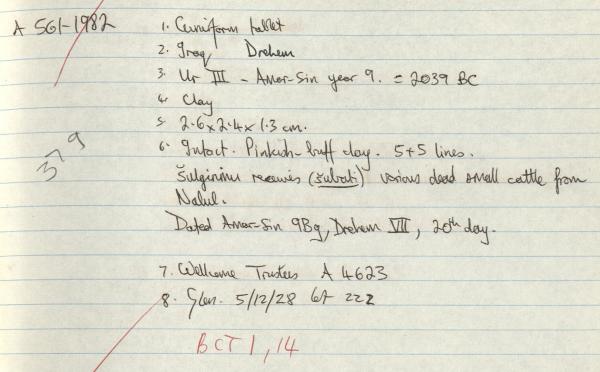 A 561-1982
1. Cuneiform tablet
2. Iraq Drehem
3. Ur III - Amar-Sin year 9. = 2039 BC
4. Clay
5. 2.6 x 2.4 x 1.3 cm.
6. Intact. Pinkish-buff clay. 5+5 lines.
Šulgirimu receives (šubati) various dead small cattle from
Nalul.
Dated Amar-Sin 9Bg, Drehem VII, 20th day.
379
7. Wellcome Trustees A 4623
8. Glen. 5/12/28 lot 222
BCT 1, 14